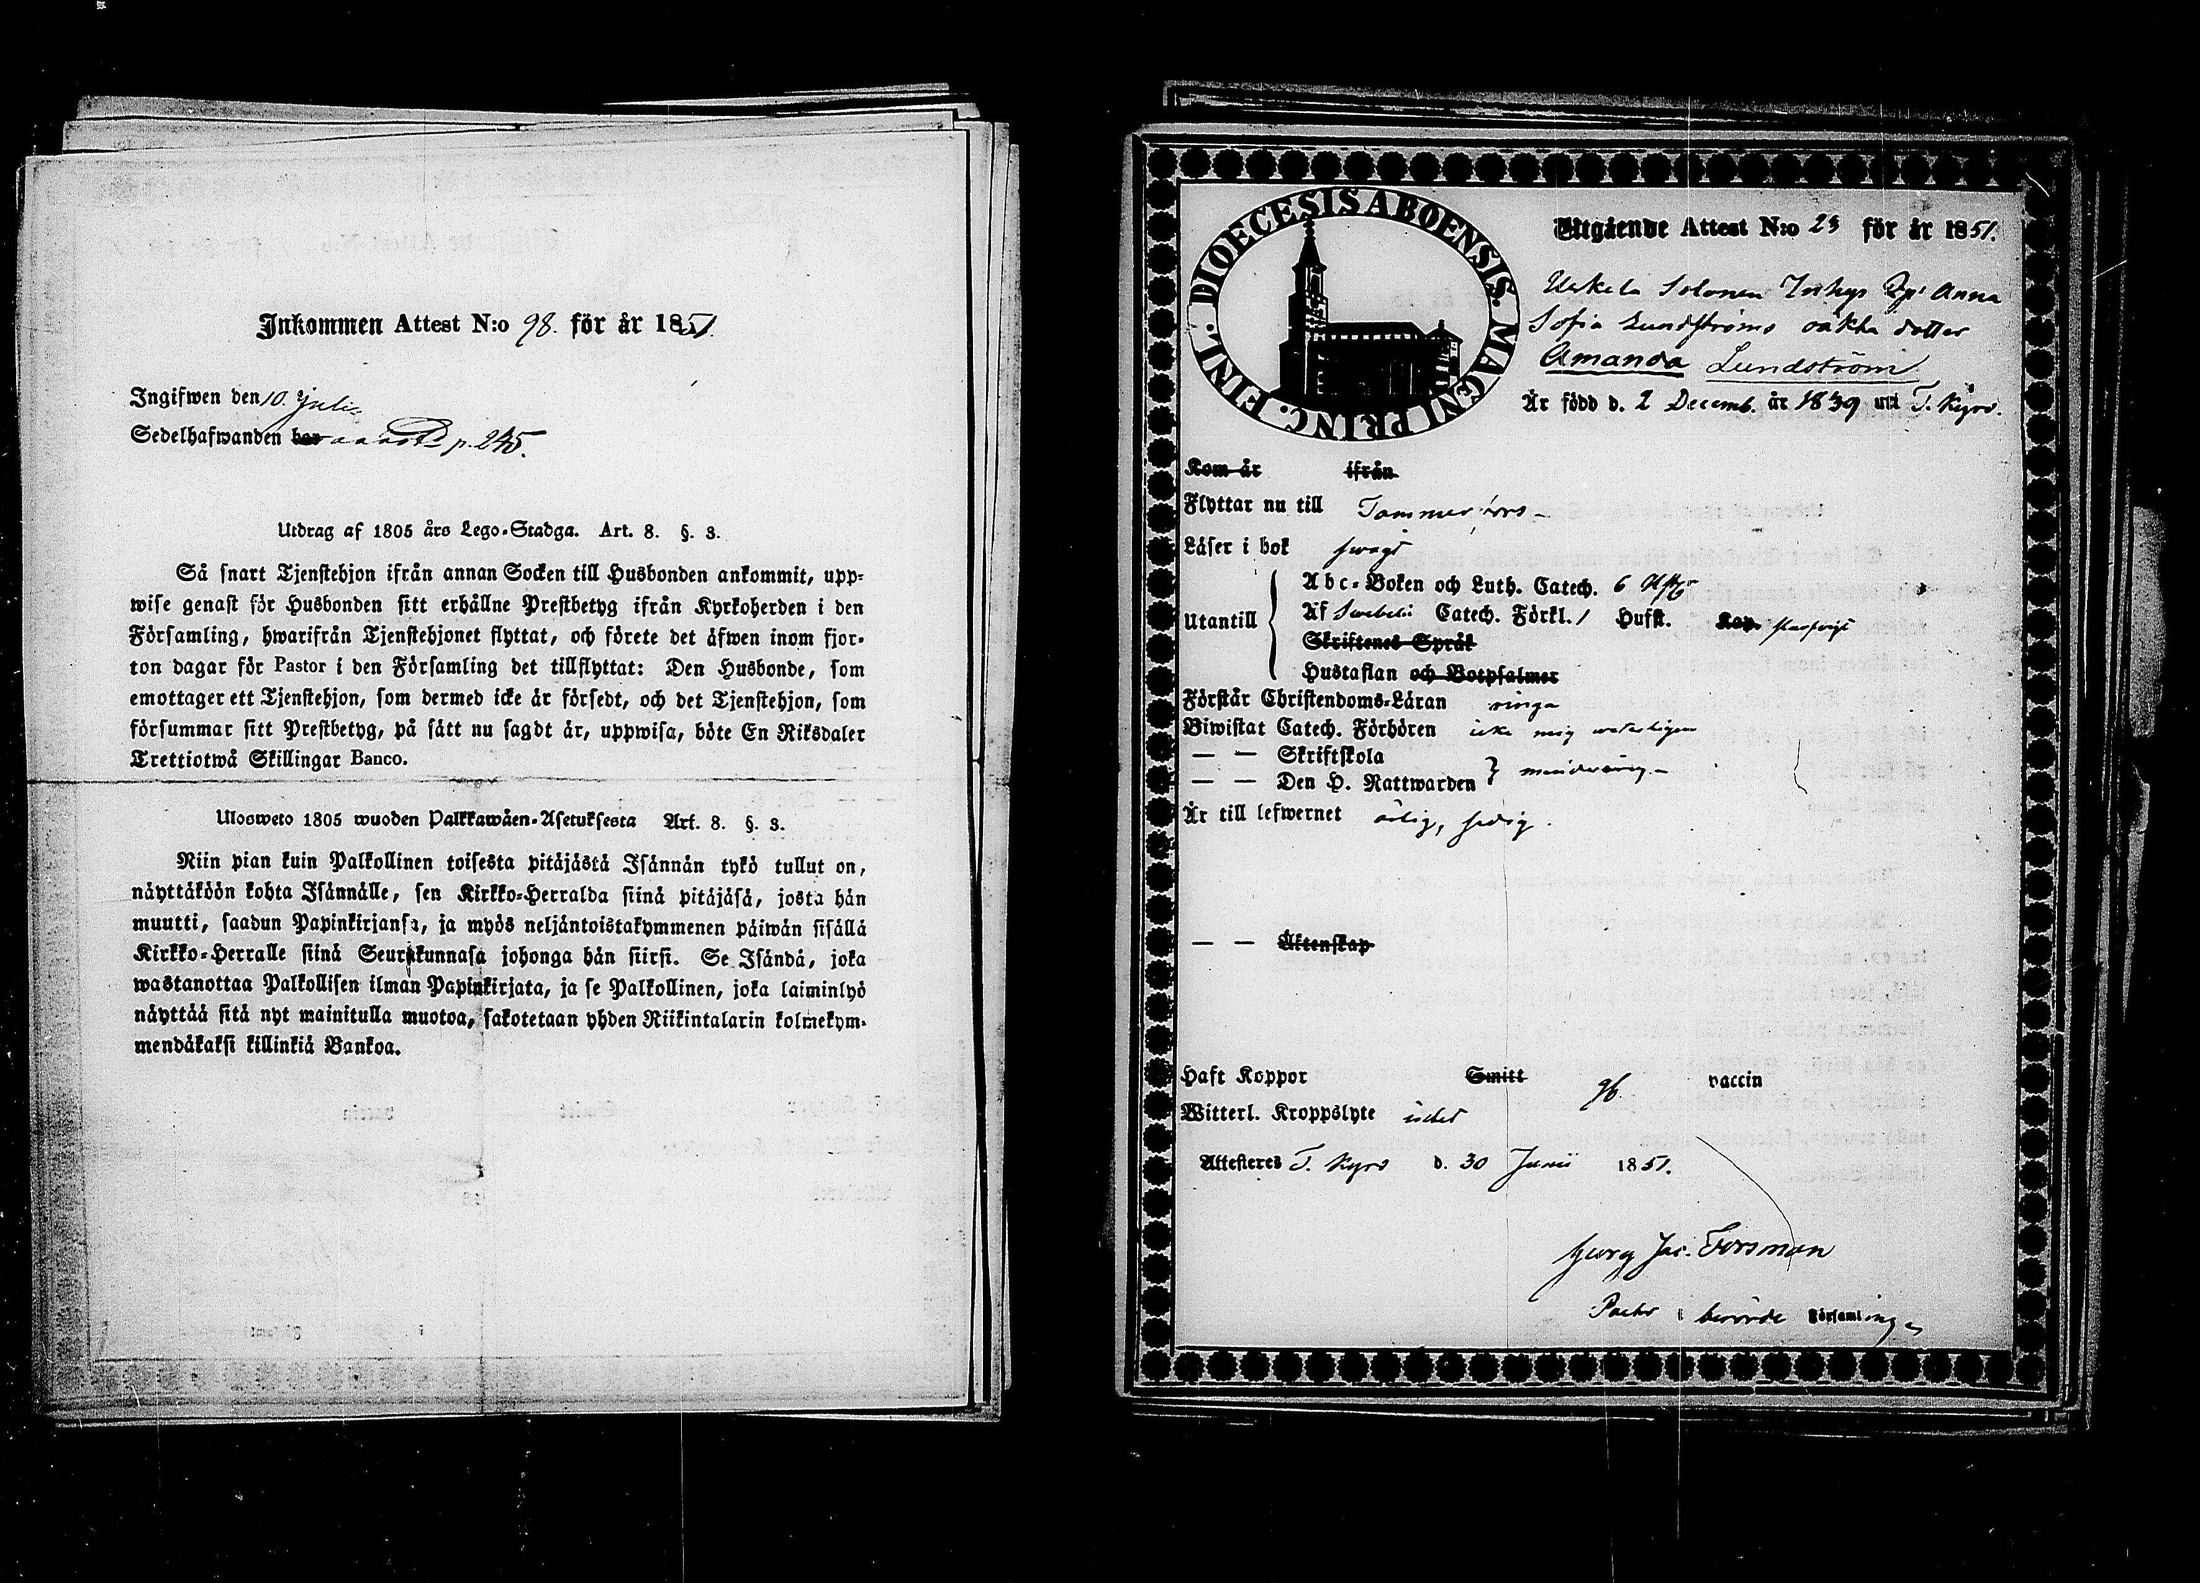 Inkommen Attest N:o 98. för år 1851.
Ingifwen den 10. Juli
Sedelhafwanden p. 245.
Utdrag af 1805 års Lego-Stadga. Art. 8. §. 3.
Så snart Tjenstehjon ifrån annan Socken till Husbonden ankommit, upp-
wise genast för Husbonden sitt erhållne Prestbetyg ifrån Kyrkoherden i den
Församling, hwarifrån Tjenstehjonet flyttat, och förete det äfwen inom fjor-
ton dagar för Pastor i den Församling det tillflyttat: Den Husbonde, som
emottager ett Tjenstehjon, som dermed icke är försedt, och det Tjenstehjon, som
försummar sitt Prestbetyg, på sätt nu sagdt är, uppwisa, böte En Riksdaler
Trettiotwå Skillingar Banco.
Ulosweto 1805 wuoden Palkkawäen-Asetuksesta Art. 8. §. 3.
Niin pian kuin Palkollinen toisesta pitäjästä Isännän tykö tullut on,
näyttäköön kohta Isännälle, sen Kirkko-Herralda siinä pitäjäsä, josta hän
muutti, saadun Papinkirjansa, ja myös neljäntoistakymmenen päiwän sisällä
Kirkko-Herralle siinä Seurakunnasa johonga hän siirsi. Se Isändä, joka
wastanottaa Palkollisen ilman Papinkirjata, ja se Palkollinen, joka laiminlyö
näyttää sitä nyt mainitulla muotoa, sakotetaan yhden Riikintalarin kolmekym-
mendäkaksi killinkiä Bankoa.
DIOECESIS ABOENSIS. MAGNI PRINC. FINL.
Utgående Attest N:o 23 för år 1851.
Uskela Solonen Inhys Anna
Sofia Lundströms oäkta dotter
Amanda Lundström
Är född d. 2 Decemb. år 1839 uti T. Kyro.
Kom år ifrån
Flyttar nu till Tammerfors
Läser i bok swagt
Utantill
Abc-Boken och Luth. Catech. 6
Af Swebelii Catech. Förkl. 1 Hufst. Kap.
Skriftenes Språk
Hustaflan och Botpsalmer
Förstår Christendoms-Läran ringa
Biwistat Catech. Förhören icke
— — Skriftskola
— — Den H. Nattwarden
Är till lefwernet ärlig, sedig.
— — Äktenskap
Haft Koppor Smitt vaccin
Witterl. Kroppslyte intet
Attesteres T. Kyro d. 30 Junii 1851.
Georg Jac. Forsman
Pastor i berörde Församling